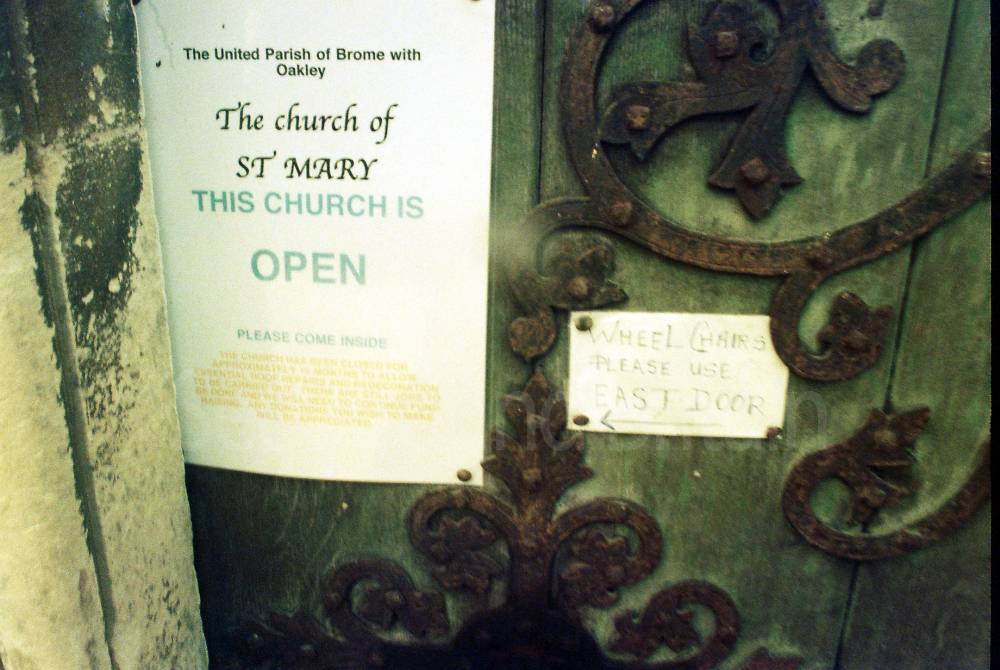 The United Parish of Brome with
Oakley
The church of
ST MARY
THIS CHURCH IS
OPEN
PLEASE COME INSIDE
THE CHURCH HAS BEEN CLOSED FOR
APPROXIMATELY MONTHS TO ALLOW
ESSENTIAL ROOF REPAIRS AND REDECORATION
TO BE CARRIED OUT. THERE ARE STILL JOBS TO
BE DONE AND WE WILL NEED TO CONTINUE FUND
RAISING. ANY DONATIONS TO
WILL BE APPRECIATED.
WHEEL CHAIRS
PLEASE USE
EAST DOOR